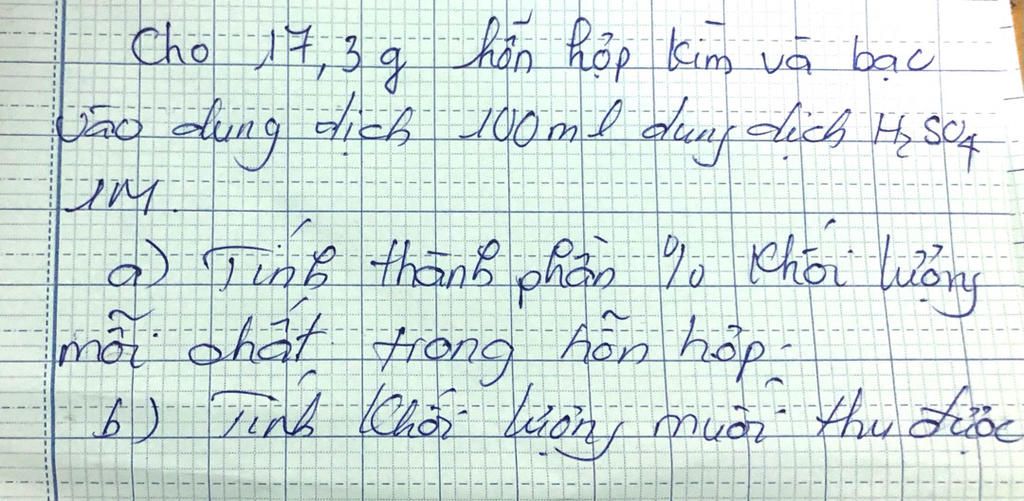 Cho 17,3 g hỗn hợp kim và bạc
vào dung dịch 100ml dung dịch H₂SO₄
1M.
a) Tính thành phần % khối lượng
mỗi chất trong hỗn hợp.
b) Tính khối lượng muối thu được